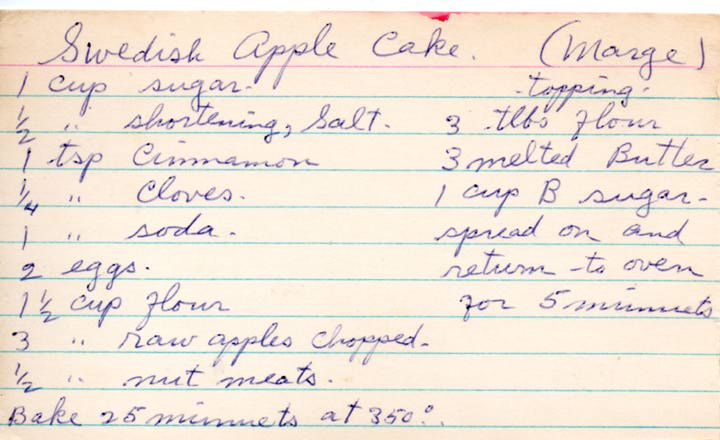 Swedish Apple Cake. (Marge)
1 cup sugar.
½ " shortening, Salt.
1 tsp Cinnamon
¼ " Cloves.
1 " soda.
2 eggs.
1 ½ cup flour
3 " raw apples chopped.
½ " nut meats.
Bake 25 minuets at 350°.
topping.
3 tlbs flour
3 melted Butter
1 cup B sugar.
spread on and
return to oven
for 5 minuets